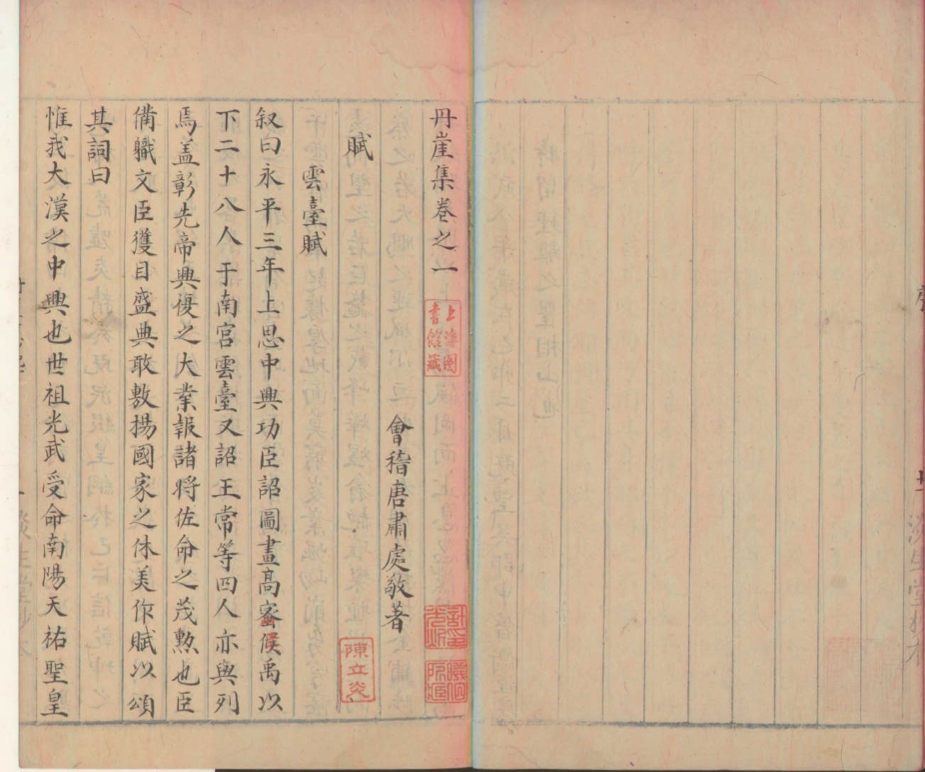 丹崖集卷之一
上海圖書館藏
會稽唐肅處敬著
賦
陳立炎
雲臺賦
叙曰永平三年上思中興功臣詔圖畫高密侯禹以
下二十八人于南宮雲臺又詔王常等四人亦與列
焉盖彰先帝興復之大業報諸將佐命之茂勲也臣
備職文臣獲目盛典敢敷揚國家之休美作賦以頌
其詞曰
惟我大漢之中興也世祖光武受命南陽天祐聖皇